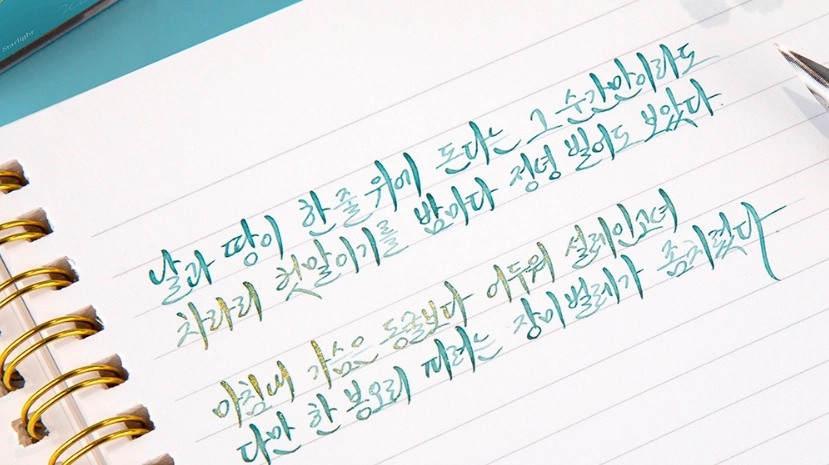 Starlight
날과 땅이 한줄 위에 돈다는 그 순간만이라도
차라리 헛말이기를 밤마다 정녕 빌어도 보았다
마침내 가슴은 동굴보다 어두워 설레인고녀
다만 한 봉오리 피려는 장미 벌레가 좀치렸다